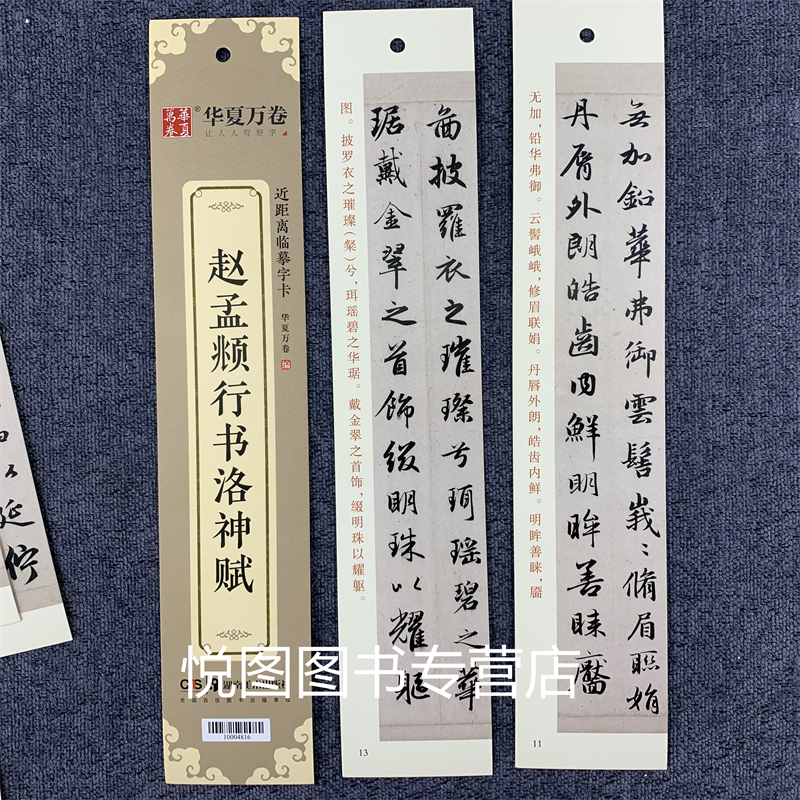 華夏
萬卷
®
华夏万卷
让人人写好字
近距离临摹字卡
华夏万卷 编
赵孟頫行书洛神赋
全国百佳图书出版单位
10004816
图。披罗衣之璀璨（粲）兮，珥瑶碧之华琚。戴金翠之首饰，缀明珠以耀躯。
啚披羅衣之璀璨兮珥瑶碧之華
琚戴金翠之首飾缀明珠以耀軀
13
无加，铅华弗御。云髻峨峨，修眉联娟。丹唇外朗，皓齿内鲜。明眸善睐，靥
無加鉛華弗御雲髻峩〻脩眉聯娟
丹脣外朗皓齒内鮮明眸善睐靨
11
以延佇
悦图图书专营店